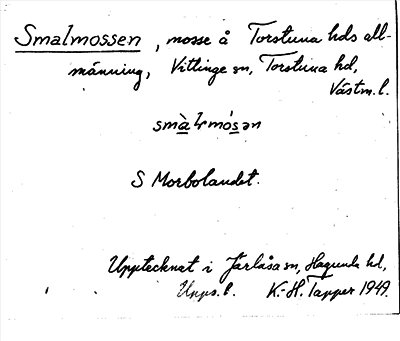 Smalmossen, mosse å Torstuna hds all-
männing, Vittinge sn, Torstuna hd,
Västm. l.
smàlmósən
S Morbolandet.
Upptecknat i Järlåsa sn, Hagunda hd,
Upps. l. K.-H. Tapper 1949.